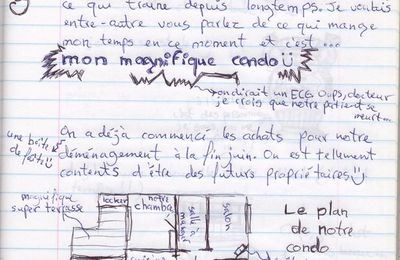 ce qui traine depuis longtemps. Je voulais
entre-autre vous parlez de ce qui mange
mon temps en ce moment et c'est...
mon magnifique condo
on dirait un ECG Oups, docteur
je crois que notre patient se
meurt...
On a déjà commencé les achats pour notre
déménagement à la fin juin. On est tellement
contents d'être des futurs propriétaires
une boîte
magnifique
super terrasse
locker
notre
chambre
salle à
manger
salon
Le plan
de notre
condo